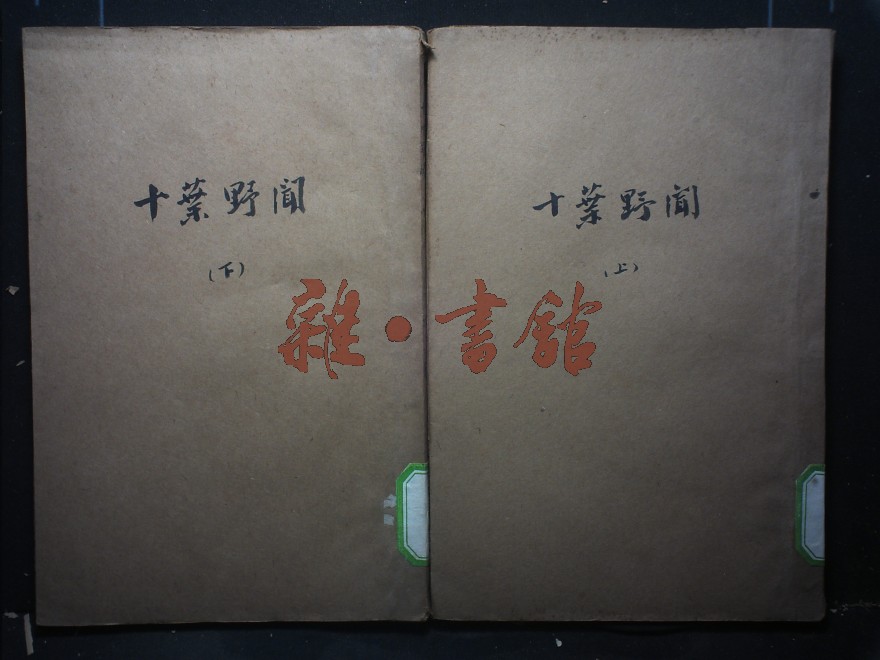 十葉野聞
(下)
十葉野聞
(上)
雜·書館